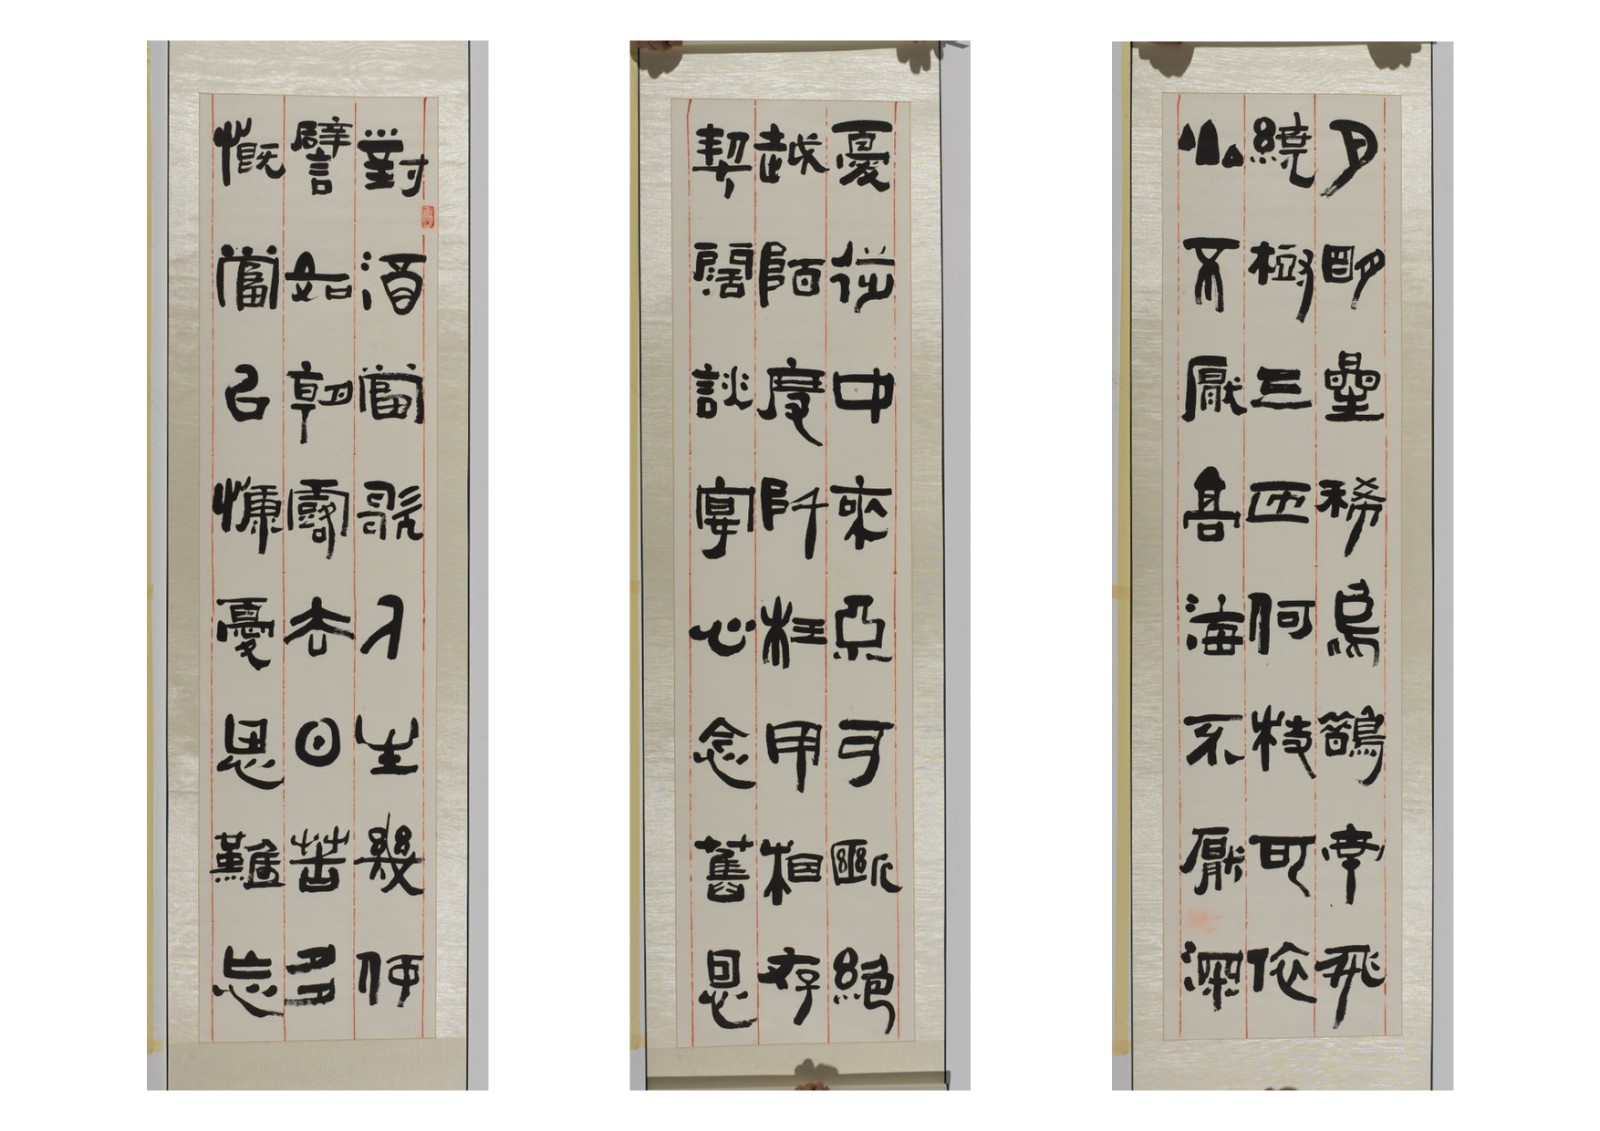 對酒當歌人生幾何
譬如朝露去日苦多
慨當以慷憂思難忘
憂從中來不可斷絕
越陌度阡枉用相存
契闊談宴心念舊恩
月明星稀烏鵲南飛
繞樹三匝何枝可依
山不厭高海不厭深